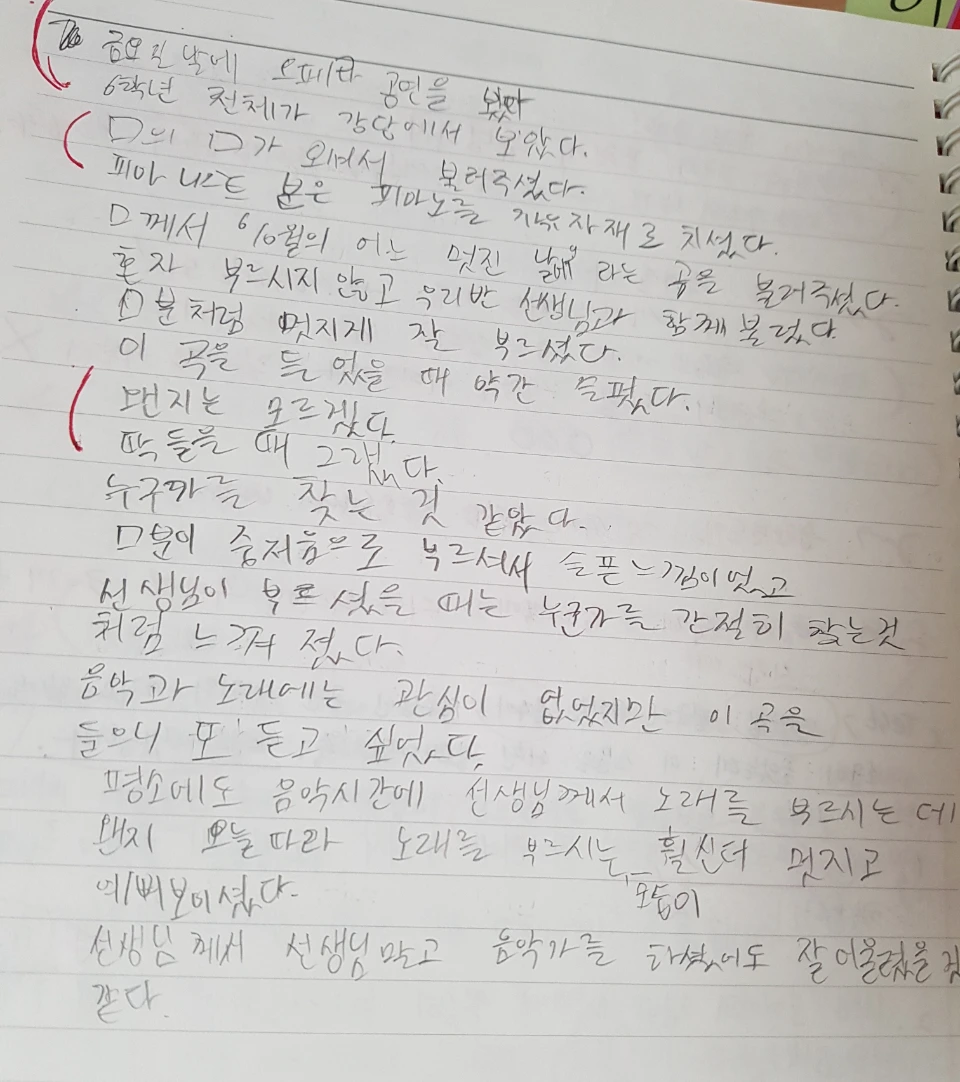 금요일 날에 오페라 공연을 봤다
6학년 전체가 강당에서 보았다.
ㅁ의 ㅁ가 오셔서 불러주셨다.
피아니스트 분은 피아노를 자유자재로 치셨다.
ㅁ께서 6/6월의 어느 멋진 날에 라는 곡을 불러주셨다.
혼자 부르시지 않고 우리반 선생님과 함께 불렀다.
ㅁ분처럼 멋지게 잘 부르셨다.
이 곡을 들었을 때 약간 슬펐다.
왠지는 모르겠다.
딱 들을 때 그랬다.
누군가를 찾는 것 같았다.
ㅁ분이 중저음으로 부르셔서 슬픈 느낌이었고
선생님이 부르셨을 때는 누군가를 간절히 찾는것
처럼 느껴 졌다.
음악과 노래에는 관심이 없었지만 이 곡을
들으니 또 듣고 싶었다.
평소에도 음악시간에 선생님께서 노래를 부르시는 데
왠지 오늘따라 노래를 부르시는 훨신더 멋지고
모습이
예뻐보이셨다.
선생님께서 선생님말고 음악가를 하셨어도 잘어울렸을 것
같다.